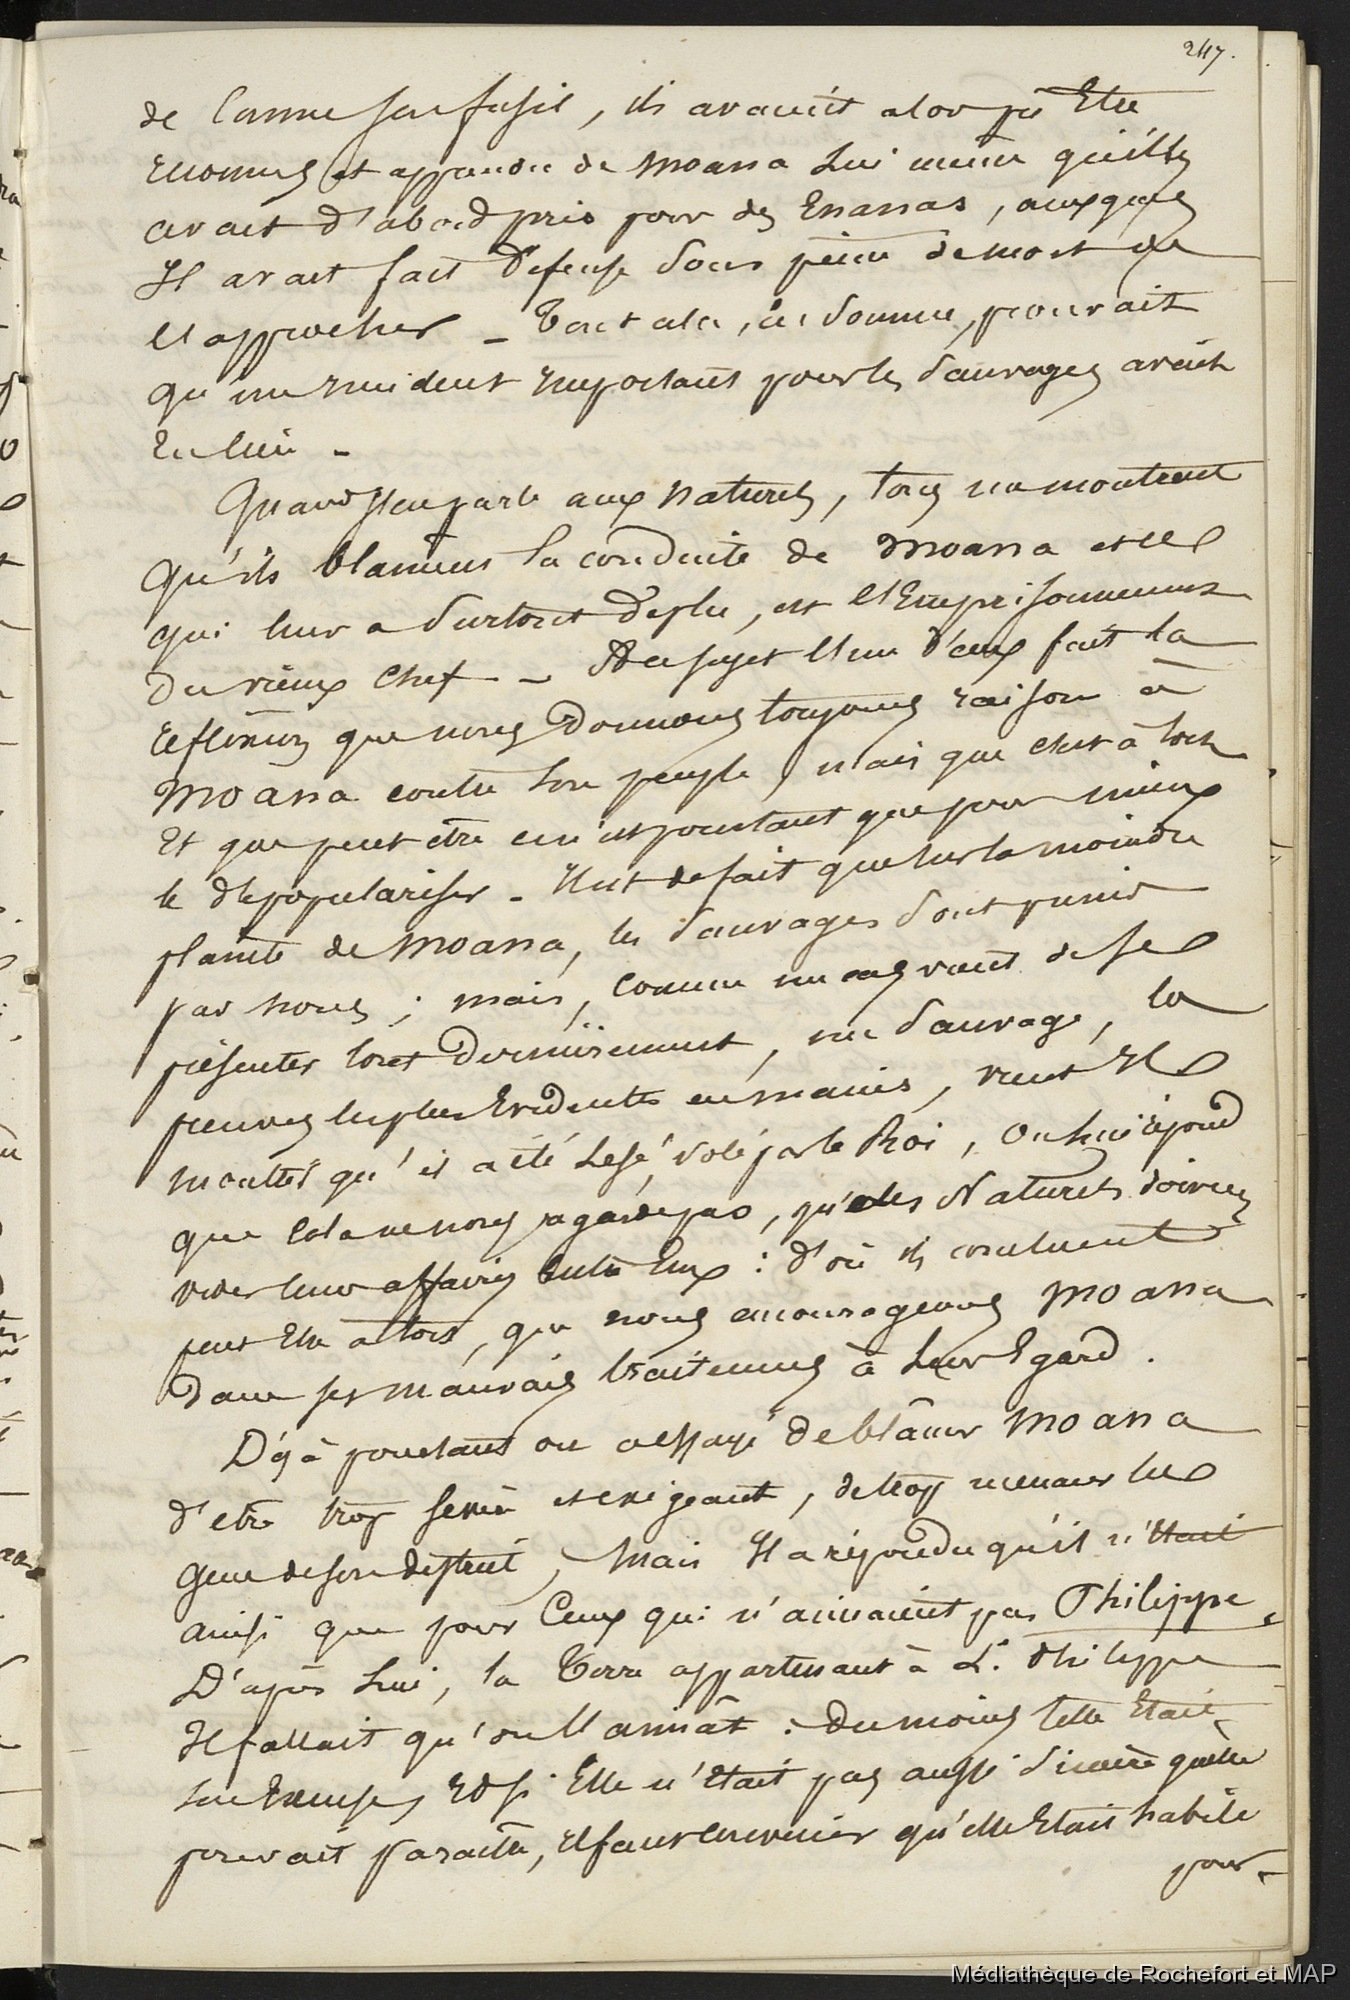 247.
de l'arme son fusil, ils avaient alors pu Etre
reconnus et apprendre de Moana Lui même qu'il les
avait d'abord pris pour des Enanas, auxquels
Il avait fait défense sous peine de mort de
l'approcher _ Tout cela, en somme, prouvait
qu'un incident important pour les sauvages avait
Eu lieu _
Quand J'en parle aux naturels, tous me montrent
qu'ils blament la conduite de Moana et ce
qui leur a surtout déplu, est l'Emprisonnement
du vieux Chef _ A ce sujet l'un d'eux fait la
réflexion que nous donnons toujours raison à
Moana contre son peuple, mais que c'est à tort
Et que peut être ce n'est pourtant que pour mieux
le dépopulariser _ Il est de fait que sur la moindre
plainte de Moana, les sauvages sont punis
par nous ; mais, comme un cas vient de se
présenter tout dernièrement, un sauvage, la
preuves les plus Evidentes en mains, vient Il
montrer qu'il a été Lesé, volé par le Roi, On lui répond
que cela ne nous regarde pas, que les Naturels doivent
vider leurs affaires entre Eux : d'où ils concluent
peut Etre à tort, que nous encourageons Moana
dans ses mauvais traitemens à Leur Egard.
Déjà pourtant on a essayé de blâmer Moana
d'etre trop sevère et exigeant, de trop menacer les
gens de son district, Mais Il a répondu qu'il n'était
ainsi que pour Ceux qui n'aimaient pas Philippe.
D'après Lui, la Terre appartenant à L. Philippe
Il fallait qu'on l'aimât : du moins telle Etait
son Excuse, Et si Elle n'Etait pas aussi sincère qu'elle
pouvait paraître, Il faut convenir qu'elle Etait habile
pour
Médiathèque de Rochefort et MAP